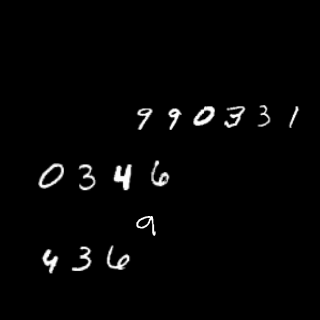 990331
0346
9
436